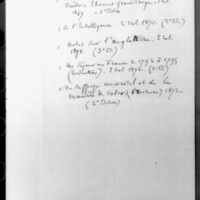 Thomas Graindorge
1867
De l'Intelligence. 2 vol. 1870. (2 Ed.)
Notes sur l'Angleterre. 1 vol.
1872 (3e Ed.)
Un Séjour en France de 1792 à 1795
(traduction). 1 vol. 1872. (2e Ed.)
Du Suffrage universel et de la
manière de voter. (brochure) 1872.
(2e Edition)